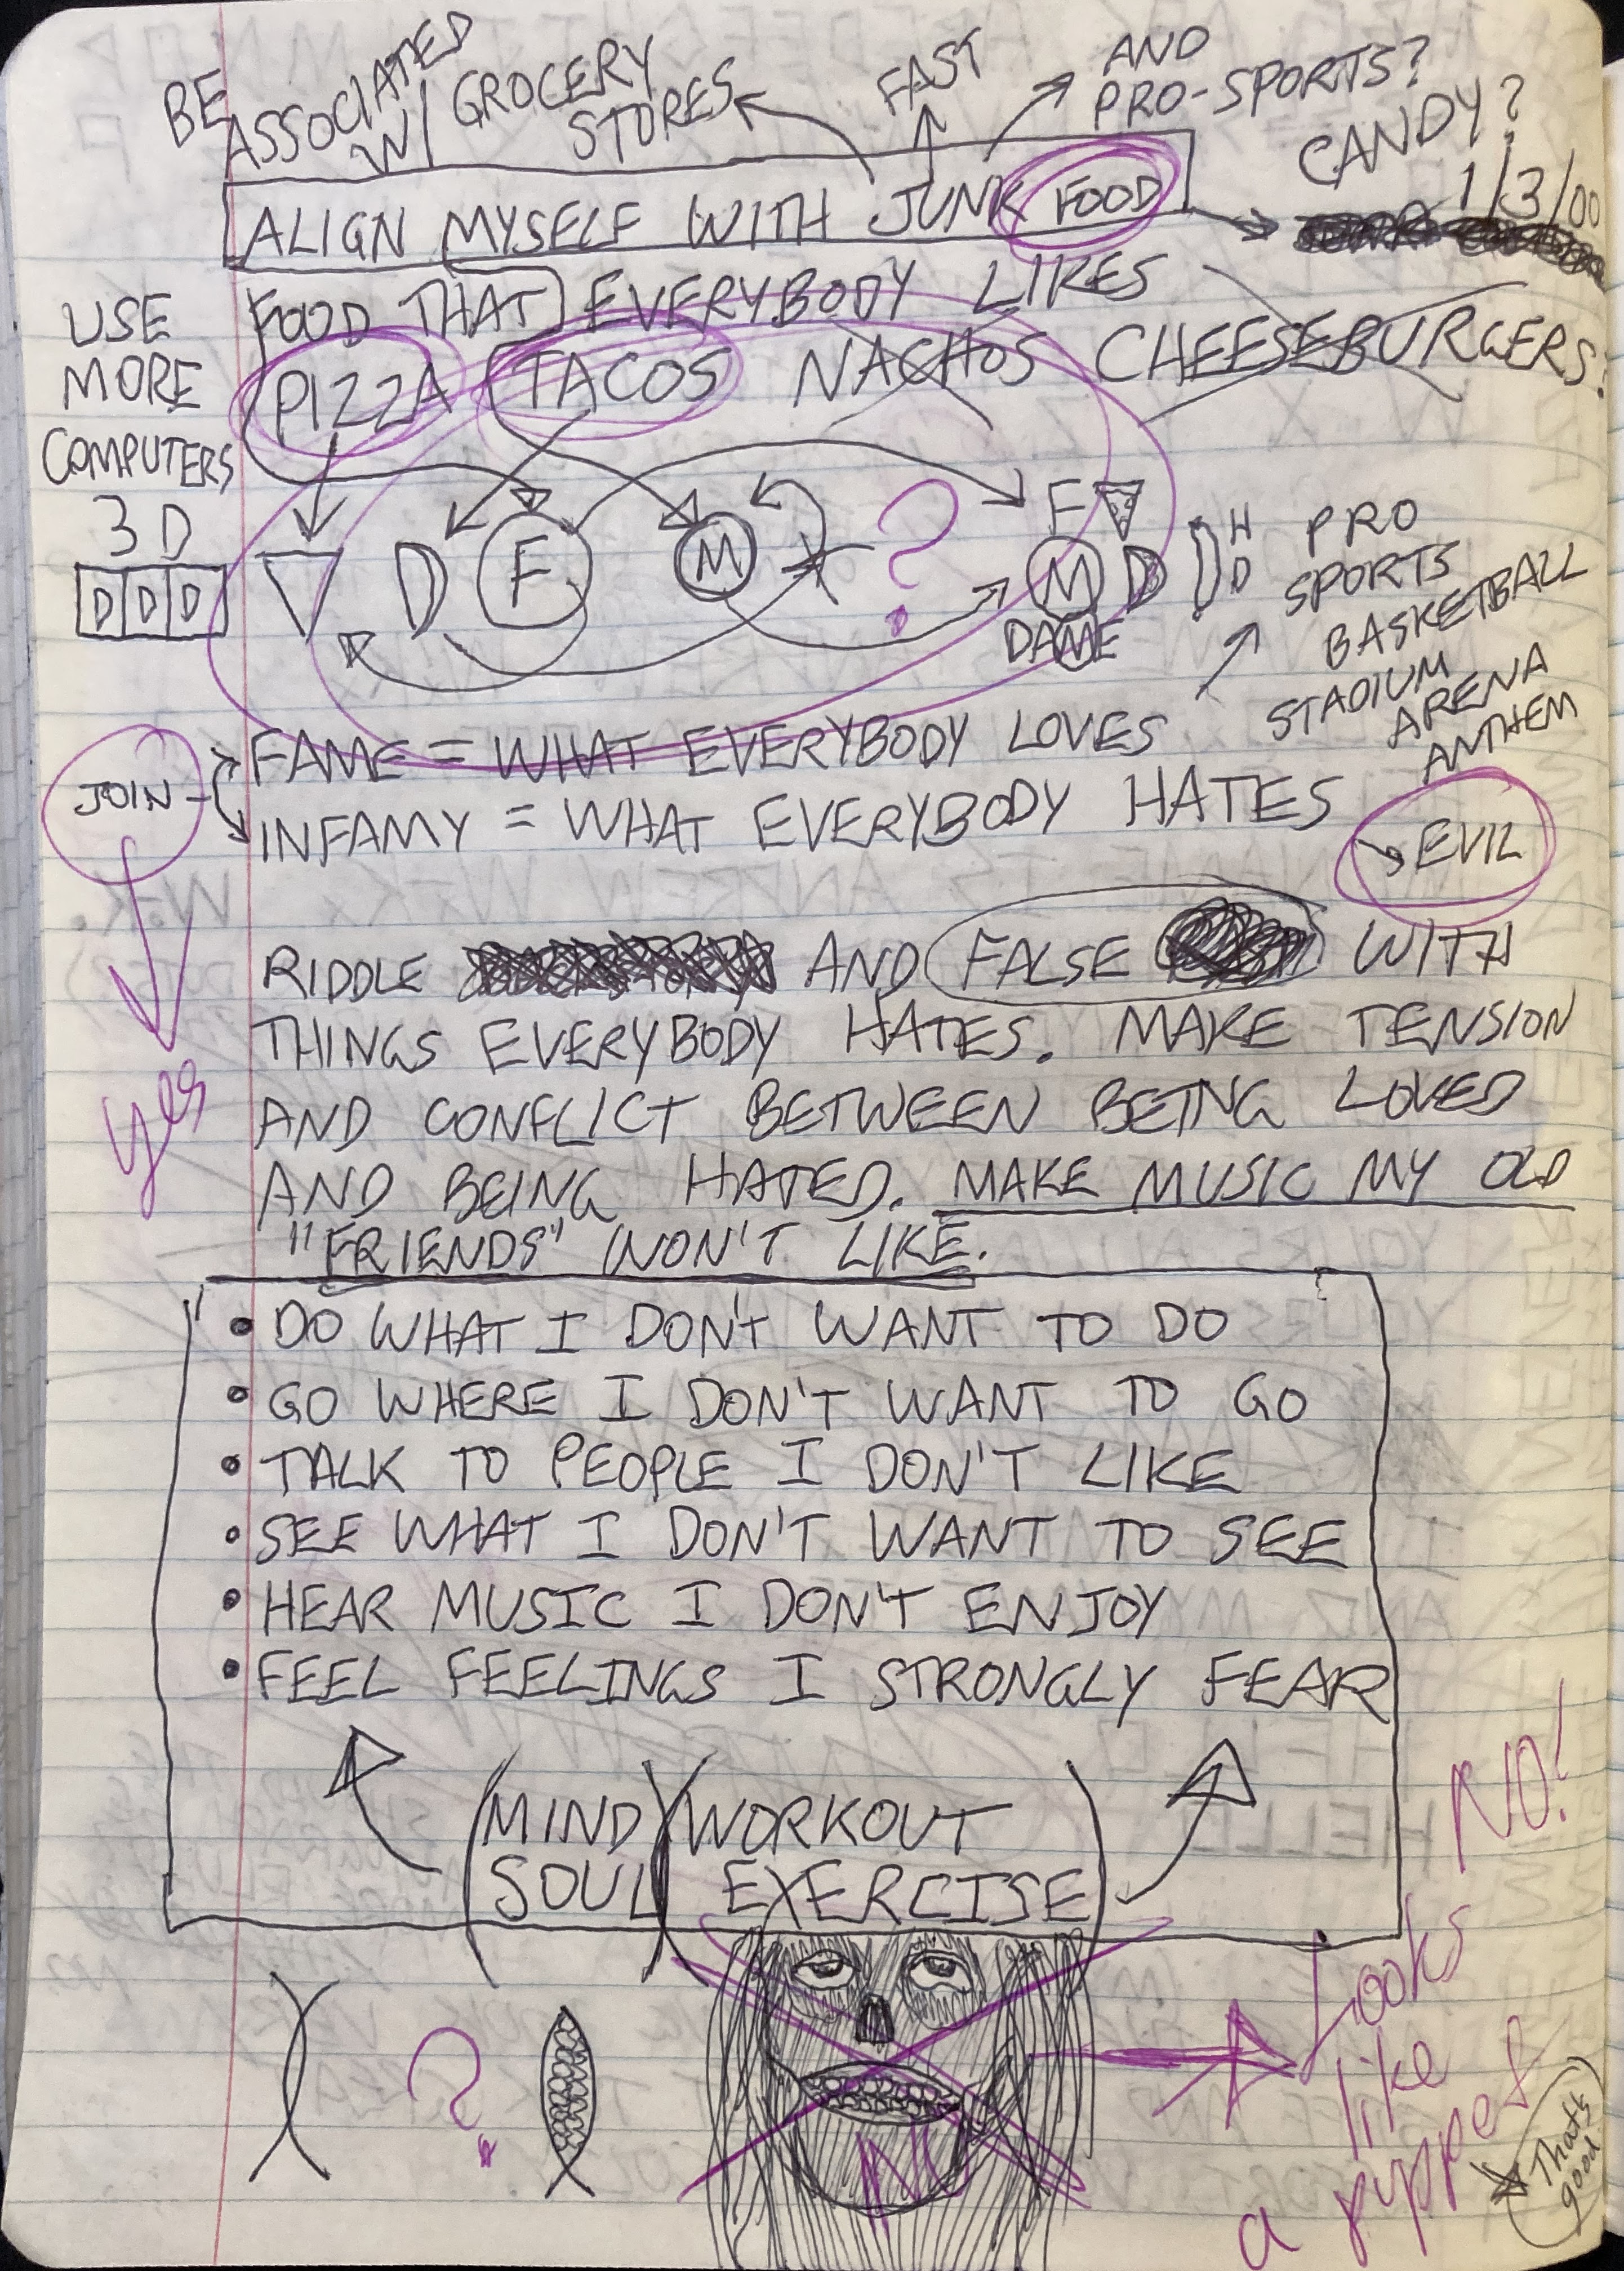 BE
ASSOCIATED
W/ GROCERY
STORES
FAST
AND
PRO-SPORTS?
CANDY?
1/3/00
ALIGN MYSELF WITH JUNK FOOD
FOOD THAT EVERYBODY LIKES
PIZZA TACOS NACHOS CHEESEBURGERS?
USE
MORE
COMPUTERS
3D
D D D
D F M ? F
M D H
D
DAME
PRO
SPORTS
BASKETBALL
STADIUM
ARENA
ANTHEM
JOIN
FAME = WHAT EVERYBODY LOVES
INFAMY = WHAT EVERYBODY HATES
EVIL
RIDDLE AND FALSE WITH
THINGS EVERYBODY HATES. MAKE TENSION
AND CONFLICT BETWEEN BEING LOVED
AND BEING HATED. MAKE MUSIC MY OLD
"FRIENDS" WON'T LIKE.
yes
• DO WHAT I DON'T WANT TO DO
• GO WHERE I DON'T WANT TO GO
• TALK TO PEOPLE I DON'T LIKE
• SEE WHAT I DON'T WANT TO SEE
• HEAR MUSIC I DON'T ENJOY
• FEEL FEELINGS I STRONGLY FEAR
(MIND) (WORKOUT
SOUL) EXERCISE)
NO!
?
Looks
like
a puppet
That's
good